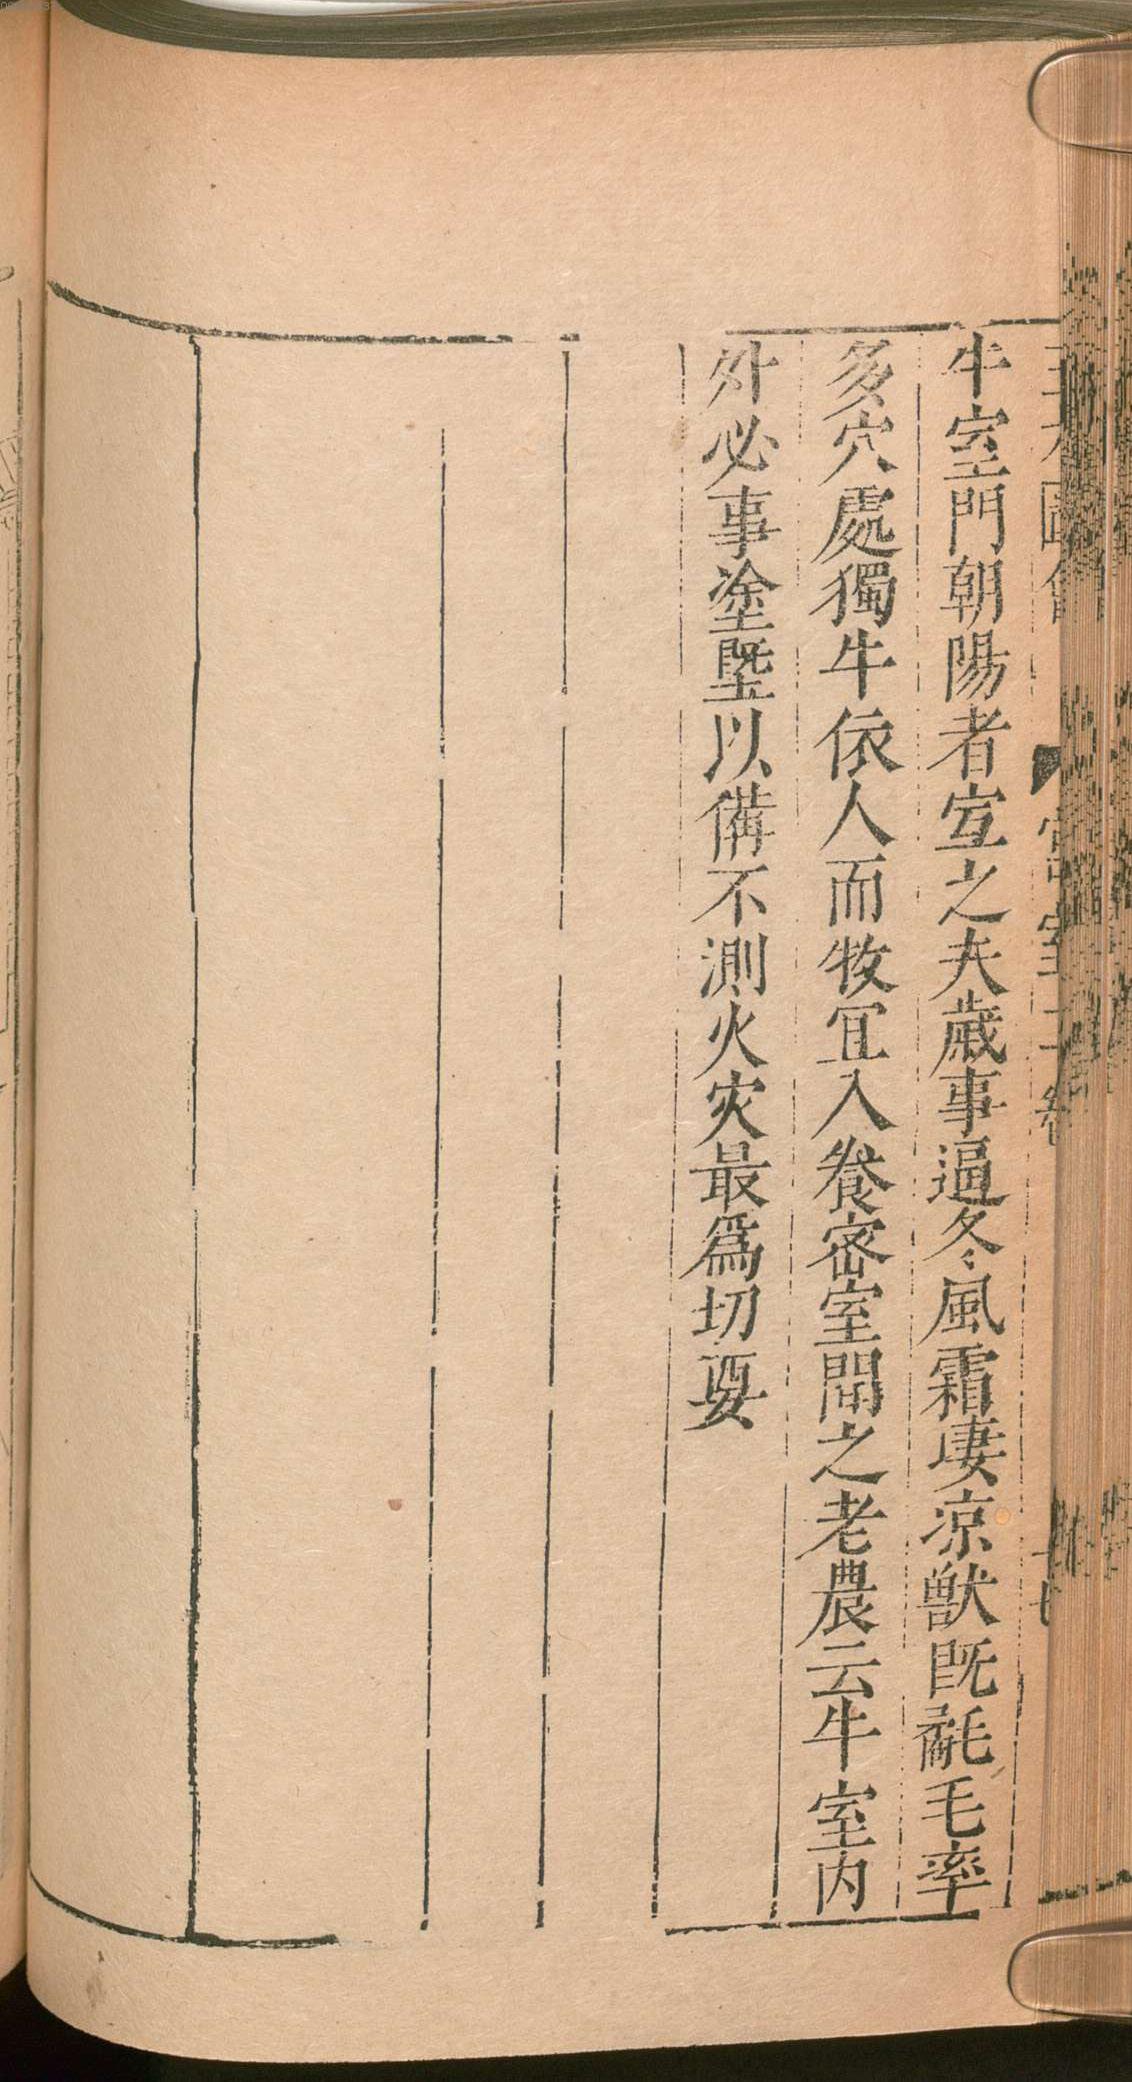 牛室門朝陽者宜之夫歲事逼冬風霜凄凉獸旣氄毛率
多穴處獨牛依人而牧冝入養密室閒之老農云牛室内
外必事塗墍以備不測火灾最爲切要